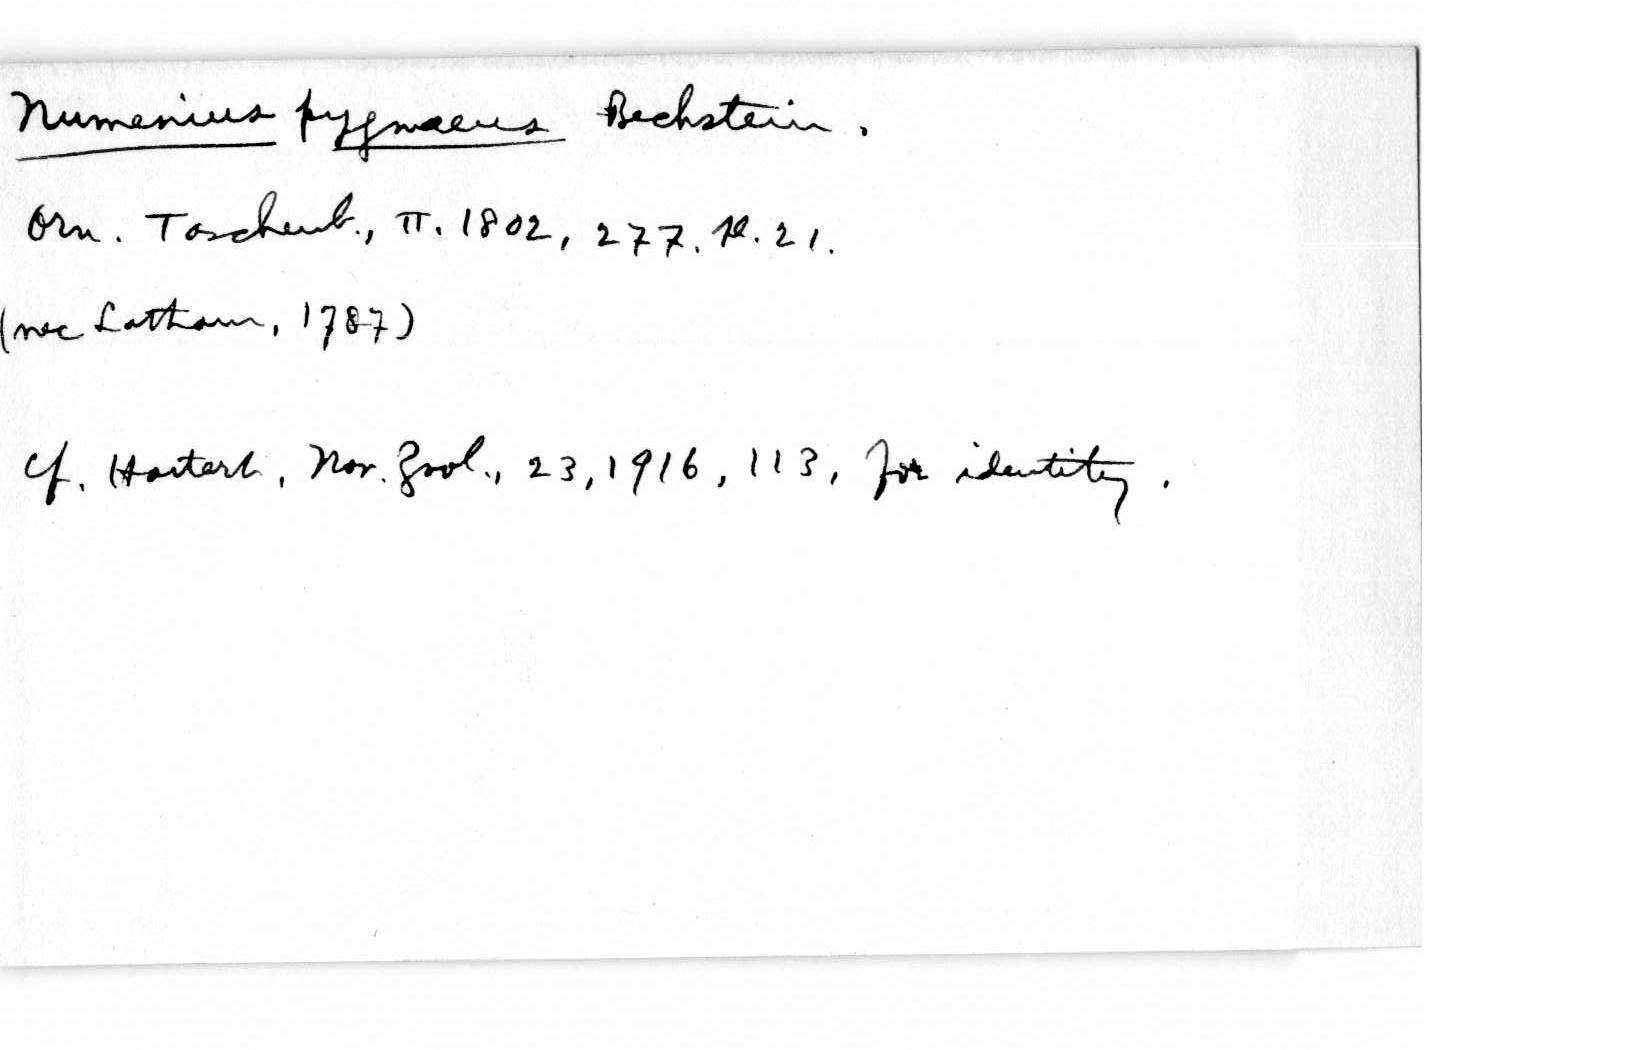 Numenius pygmaeus Bechstein.
Orn. Taschenb., II. 1802, 277. pl. 21.
(nec Latham, 1787)
cf. Hartert, Nov. Zool., 23, 1916, 113, for identity.